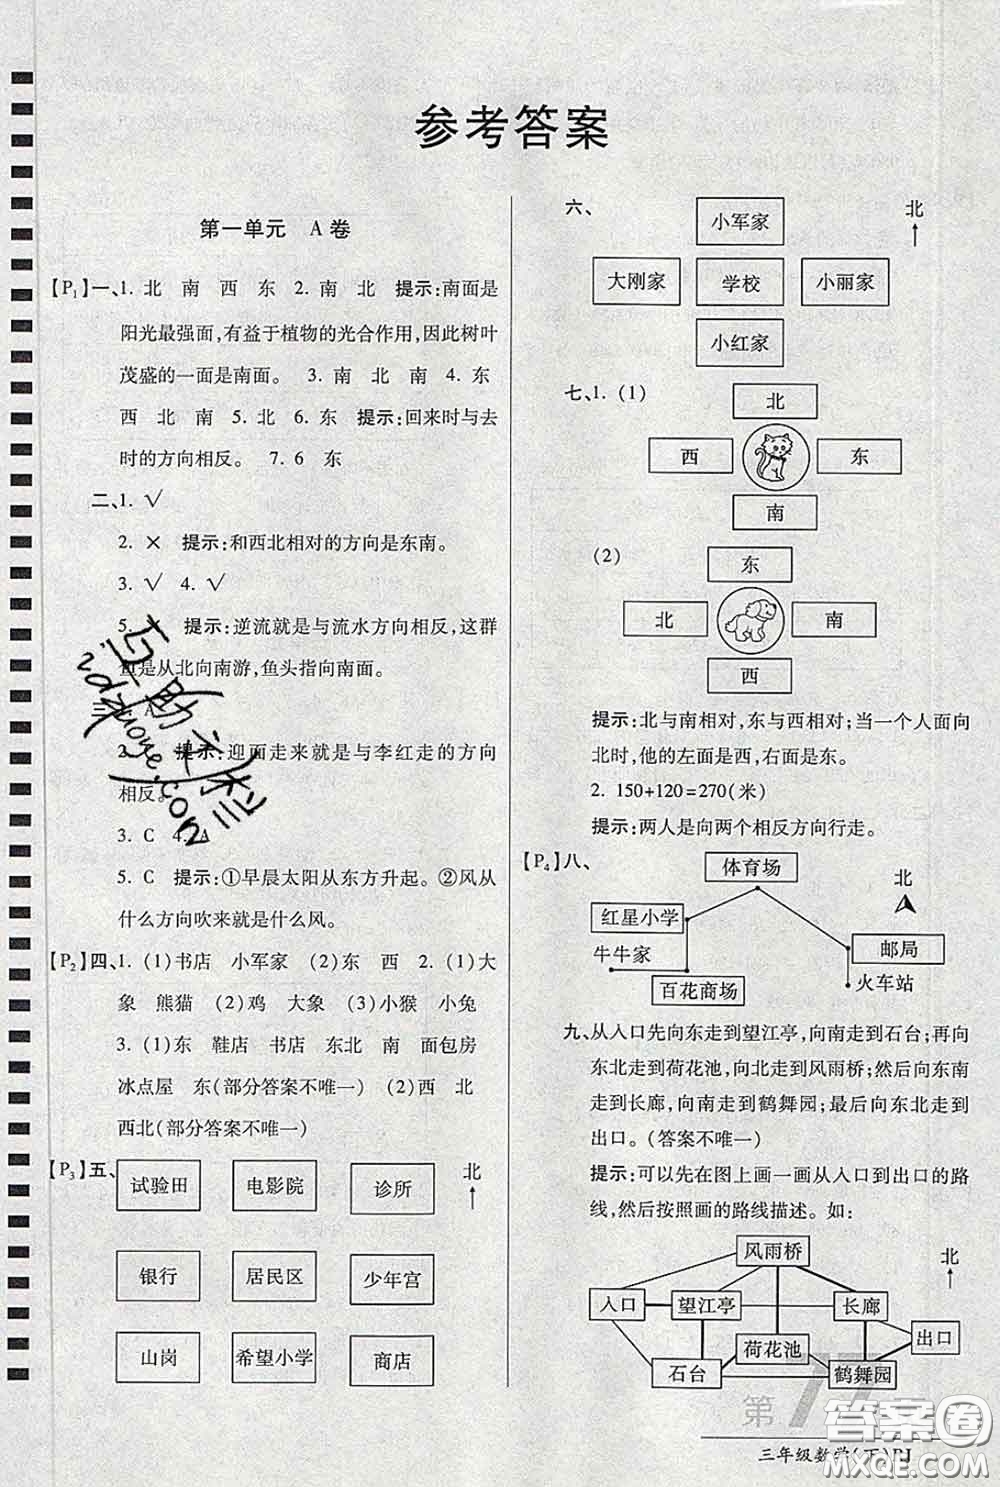 参考答案
第一单元 A卷
【P1】一、1. 北 南 西 东 2. 南 北 提示:南面是
阳光最强面,有益于植物的光合作用,因此树叶
茂盛的一面是南面。 3. 南 北 南 4. 东
西 北 南 5. 北 6. 东 提示:回来时与去
时的方向相反。 7. 6 东
二、1. √
2. × 提示:和西北相对的方向是东南。
3. √ 4. √
5. × 提示:逆流就是与流水方向相反,这群
鱼是从北向南游,鱼头指向南面。
三、1. A
2. 提示:迎面走来就是与李红走的方向
相反。
3. C 4. A
5. C 提示:①早晨太阳从东方升起。②风从
什么方向吹来就是什么风。
【P2】四、1. (1)书店 小军家 (2)东 西 2. (1)大
象 熊猫 (2)鸡 大象 (3)小猴 小兔
3. (1)东 鞋店 书店 东北 南 面包房
冰点屋 东(部分答案不唯一) (2)西 北
西北(部分答案不唯一)
【P3】五、
试验田 电影院 诊所 北
银行 居民区 少年宫
山岗 希望小学 商店
六、
小军家 北
大刚家 学校 小丽家
小红家
七、1. (1)
北
西 东
南
(2)
东
北 南
西
提示:北与南相对,东与西相对;当一个人面向
北时,他的左面是西,右面是东。
2. 150+120=270(米)
提示:两人是向两个相反方向行走。
【P4】八、
体育场
北
红星小学
牛牛家 邮局
百花商场 火车站
九、从入口先向东走到望江亭,向南走到石台;再向
东北走到荷花池,向北走到风雨桥;然后向东南
走到长廊,向南走到鹤舞园;最后向东北走到
出口。(答案不唯一)
提示:可以先在图上画一画从入口到出口的路
线,然后按照画的路线描述。如:
风雨桥 北
入口 望江亭 长廊
荷花池 出口
石台 鹤舞园
第77
三年级数学(下)RJ
答案圈
MXQE.COM
互助文档
vdzuoye.con